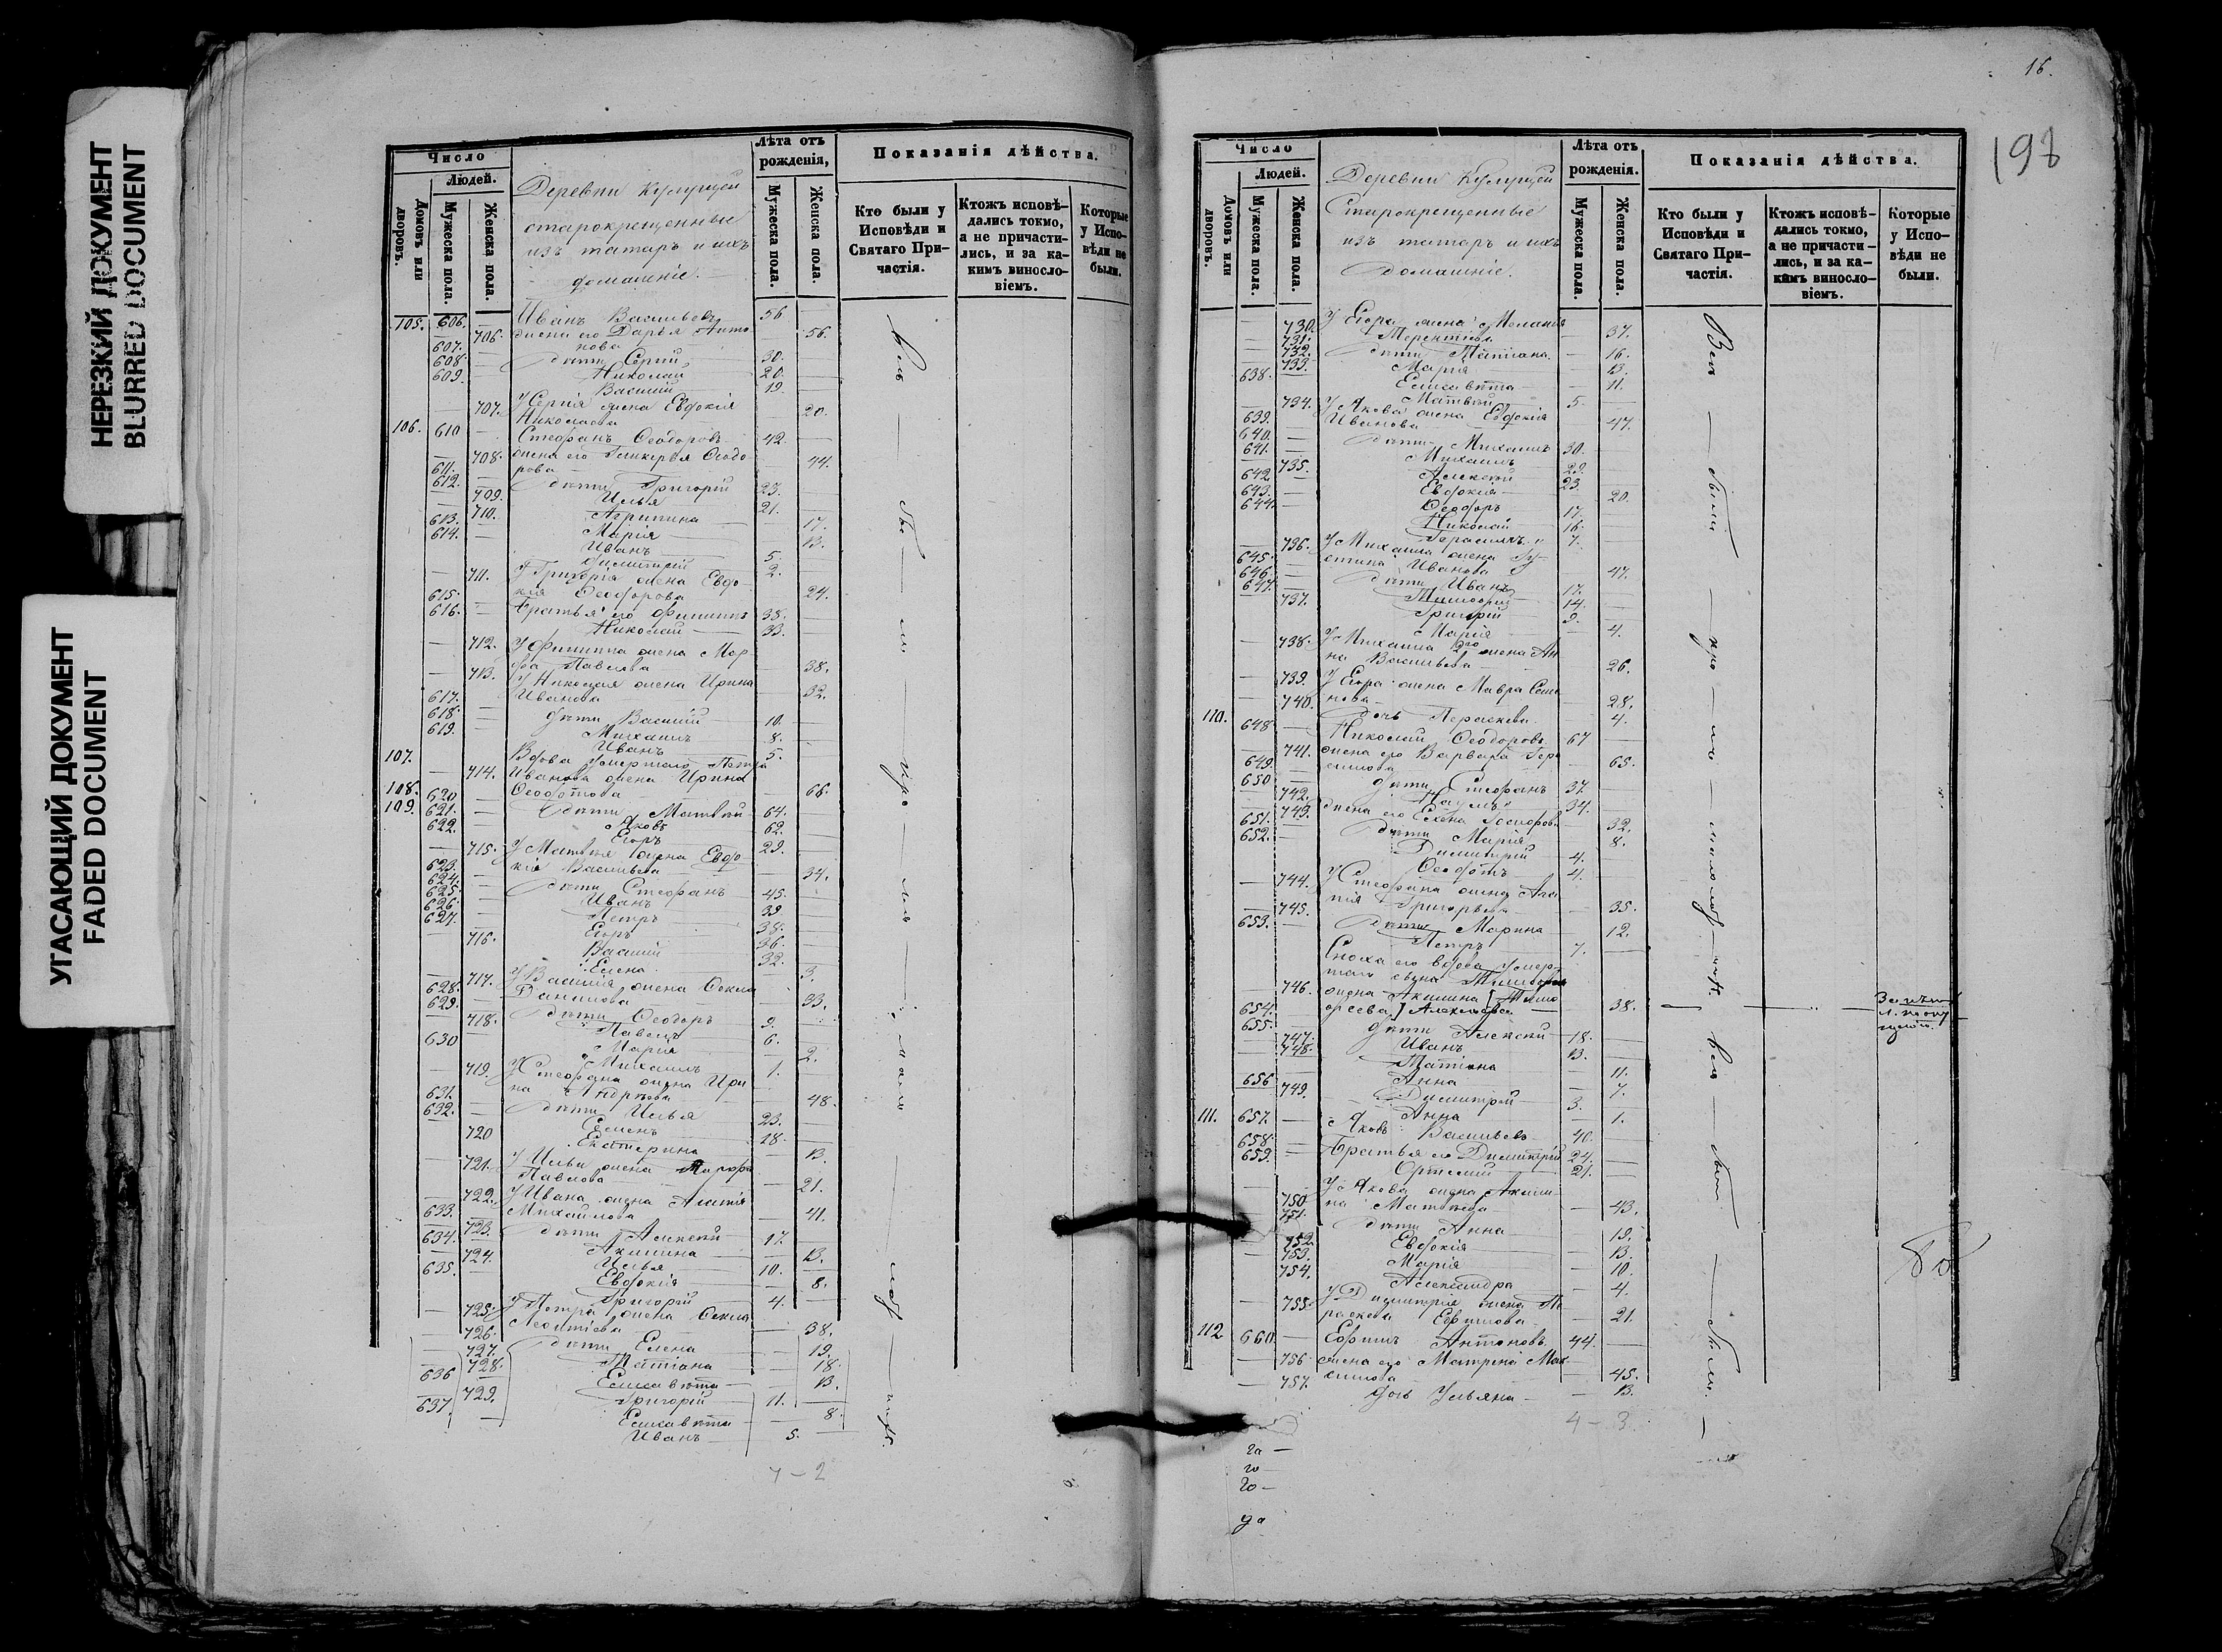 НЕРЕЗКИЙ ДОКУМЕНТ
BLURRED DOCUMENT
УГАСАЮЩИЙ ДОКУМЕНТ
FADED DOCUMENT
Число
Людей.
Домовъ или дворовъ.
Мужеска пола.
Женска пола.
Деревни
старокрещенные
изъ татаръ и ихъ
домашніе.
Лѣта отъ рожденія,
Мужеска пола.
Женска пола.
Показанія дѣйства.
Кто были у Исповѣди и Святаго Причастія.
Ктожъ исповѣдались токмо, а не причастились, и за какимъ винословіемъ.
Которые у Исповѣди не были.
105. 606. Иванъ Васильевъ 56
706. жена его Дарья Анто 56.
нова
607. дѣти Сергій 30.
608. Николай 20.
609. Василій 19.
707. У Сергія жена Евдокія 20.
Николаева
106. 610 Стефанъ Ѳеодоровъ 42.
708. жена его Ѳеодо 44.
рова
611. дѣти Григорій 23.
612. Илья 21.
709. Агрипина 17.
710. Марія 13.
613. Иванъ 5.
614. Димитрій 2.
711. У Григорія жена Евдо
кія Ѳеодорова 24.
615. Братья его Филиппъ 35.
616. Николай 33.
712. У Филиппа жена Мар
ѳа Павлова 38.
713. У Николая жена Ирина
Иванова 32.
617. дѣти Василій 10.
618. Михаилъ 8.
619. Иванъ 5.
107. Вдова умершаго Петра
714. Иванова жена Ирина
Ѳеодотова 66.
108. 620 дѣти Матвѣй 64.
109. 621. Яковъ 62.
622. Егоръ 29.
715. У Матвѣя жена Евдо
кія Васильева 34.
623. дѣти Стефанъ 45.
624. Иванъ 39
625. Петръ 38.
626. Егоръ 36.
627. Василій 32.
716. Елена 3.
717. У Василія жена Ѳекла
Данилова 33.
628. дѣти Ѳеодоръ 9.
629. Павелъ 6.
718. Марія 2.
630 Михаилъ 1.
719. У Стефана жена Ири
на Андреева 48.
631. дѣти Илья 23.
632. Семенъ 18.
720 Екатерина 13.
721. У Ильи жена Марѳа
Павлова 21.
722. У Ивана жена Агафія
Михайлова 41.
633. дѣти Алексѣй 17.
723. Акилина 13.
634. Илья 10.
724. Евдокія 8.
635. Григорій 4.
725. У Петра жена Ѳекла
Леонтіева 38.
726. дѣти Елена 19.
727. Татіана 18.
728. Елисавета 13.
636 Григорій 11.
729. Елисавета 8.
637. Иванъ 5.
7 – 2
16.
198
Число
Людей.
Домовъ или дворовъ.
Мужеска пола.
Женска пола.
Деревни
Старокрещенные
изъ татаръ и ихъ
домашніе.
Лѣта отъ рожденія.
Мужеска пола.
Женска пола.
Показанія дѣйства.
Кто были у Исповѣди и Святаго Причастія.
Ктожъ исповѣдались токмо, а не причастились, и за какимъ винословіемъ.
Которые у Исповѣди не были.
730. У Егора жена Меланія
37.
731. дѣти Татіана 16.
732. Марія 13.
733. Елисавета 11.
638. Матвѣй 5.
734. У Якова жена Евдокія
Иванова 47.
639. дѣти Михаилъ 30.
640. Михаилъ 29.
641. Алексѣй 23.
735. Евдокія 20.
642 Ѳеодоръ 17.
643. Николай 16.
644. Герасимъ 7.
736. У Михаила жена Іу
стина Иванова 47.
645. дѣти Иванъ 17.
646. Тимоѳей 14.
647. Григорій 9.
737. Марія 4.
738. У Михаила 2го жена Ан
на Васильева 26.
739. У Егора жена Мавра Семе
нова 28.
740. дочь Параскева 4.
110. 648 Николай Ѳеодоровъ 67
741. жена его Варвара Гера
симова 65.
649. дѣти Стефанъ 37.
650 34.
742. жена его Елена 32.
743. дѣти Марія 8.
651. Димитрій 4.
652. Ѳеодотъ 4.
744. У Стефана жена Ага
пія Григорьева 35.
745. дѣти Марина 12.
653. Петръ 7.
Сноха его вдова умер
шаго сына Тимоѳея
746. жена Акилина [Тимо
ѳеева] Алексѣева 38.
654. дѣти Алексѣй 18.
655. Иванъ 13.
747. Татіана 11.
748. Анна 7.
656 Димитрій 3.
749. Анна 1.
111. 657. Яковъ Васильевъ 40.
658. Братья его Димитрій 24.
659. 21.
750 У Якова жена Акили
на Матвѣева 43.
751. дѣти Анна 19.
752 Евдокія 13.
753. Марія 10.
754. Александра 4.
755. У Димитрія жена Па
раскева Ефимова 21.
112 660 Ефимъ Антоновъ 44.
756 жена его Матрена Мак
симова 45.
757. дочь Ульяна 13.
4 – 3